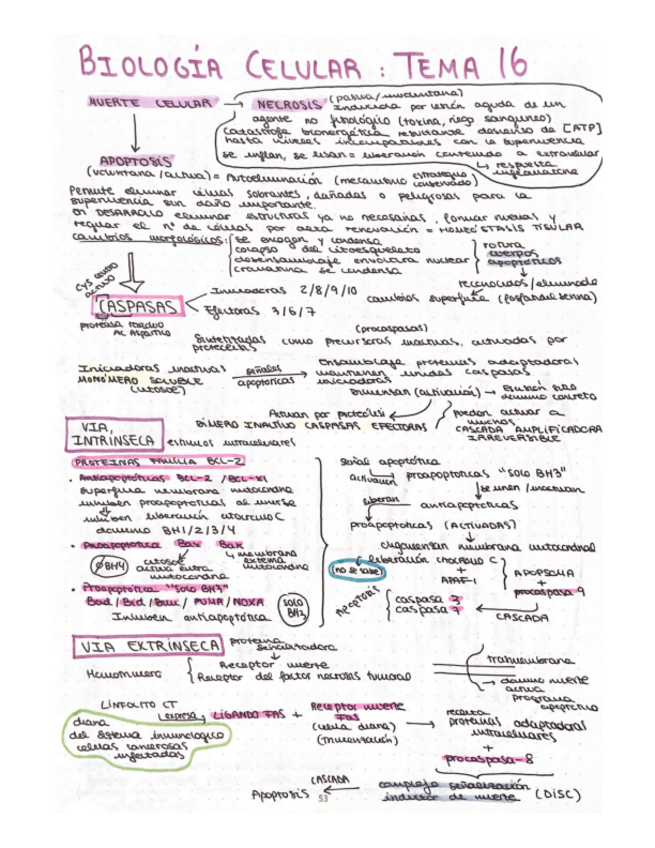 BIOLOGÍA CELULAR : TEMA 16
MUERTE CELULAR → NECROSIS (pasiva/involuntaria)
Inducida por lesión aguda de un
agente no fisiológico (toxina, riego sanguíneo)
catástrofe bioenergética resultante descenso de [ATP]
hasta niveles incompatibles con la supervivencia
se inflan, se lisan = liberación contenido a extracelular
↳ respuesta
inflamatoria
APOPTOSIS
(voluntaria/activa) = Autoeliminación (mecanismo estrategia
conservado)
Permite eliminar células sobrantes, dañadas o peligrosas para la
supervivencia sin daño importante.
En DESARROLLO eliminar estructuras ya no necesarias, formar nuevas y
regular el nº de células por alta renovación = HOMEOSTASIS TISULAR
cambios morfológicos:
se encogen y condensa
colapso del citoesqueleto
desensamblaje envoltura nuclear
cromatina se condensa
rotura
cuerpos
apoptóticos
reconocidos/eliminado
cambios superficie (fosfatidilserina)
cys centro
activo
CASPASAS
Iniciadoras 2/8/9/10
Efectoras 3/6/7
proteasa residuo
Ac Aspártico
(procaspasas)
Sintetizadas como precursoras inactivas, activadas por
proteólisis
Iniciadoras inactivas
MONÓMERO SOLUBLE
(citosol)
señales
apoptóticas
Ensamblaje proteínas adaptadoras
mantienen unidas caspasas
iniciadoras
Dimerizan (activación) →
dominio concreto
Actúan por proteólisis
DÍMERO INACTIVO CASPASAS EFECTORAS
pueden activar a
muchos
CASCADA AMPLIFICADORA
IRREVERSIBLE
VIA
INTRÍNSECA
estímulos intracelulares
PROTEÍNAS FAMILIA BCL-2
• Antiapoptóticas BCL-2 / BCL-XL
superficie membrana mitocondria
inhiben proapoptóticas al unirse
inhiben liberación citocromo C
dominio BH1/2/3/4
• Proapoptótica Bax Bak
ØBH4
citosol
activa entra
mitocondria
↳ membrana
externa
mitocondria
• Proapoptótica "SOLO BH3"
Bad / Bid / Bim / PUMA / NOXA
Inhiben antiapoptótica
SOLO
BH3
señal apoptótica
activan → proapoptóticas "SOLO BH3"
se unen / inactivan
antiapoptóticas
liberan
proapoptóticas (ACTIVADAS)
membrana mitocondrial
(no se sabe)
liberación citocromo C
+
APAF-1
APOPSOMA
+
procaspasa 9
CASCADA
caspasa 3
caspasa 7
APOPTOSIS
VIA EXTRÍNSECA
proteína
señalizadora
Homotrímero
Receptor muerte
Receptor del factor necrosis tumoral
transmembrana
dominio muerte
activa
programa
apoptótico
LINFOCITO CT
expresa
LIGANDO FAS +
Receptor muerte
Fas
(célula diana)
(trimerización)
diana
del sistema inmunológico
células cancerosas
infectadas
recluta
proteínas adaptadoras
intracelulares
+
procaspasa-8
complejo señalización
inductor de muerte (DISC)
CASCADA
Apoptosis
53